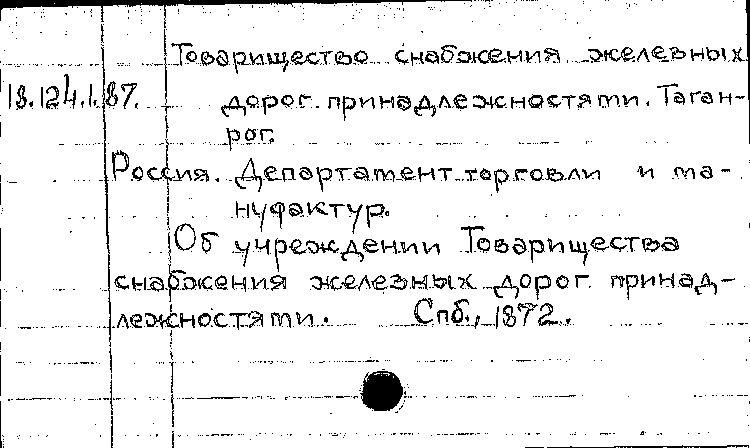 Товарищество снабжения железных
18.124.1.87.
дорог принадлежностями. Таган-
рог.
Россия. Департамент торговли и ма-
нуфактур.
Об учреждении Товарищества
снабжения железных дорог принад-
лежностями. Спб., 1872.